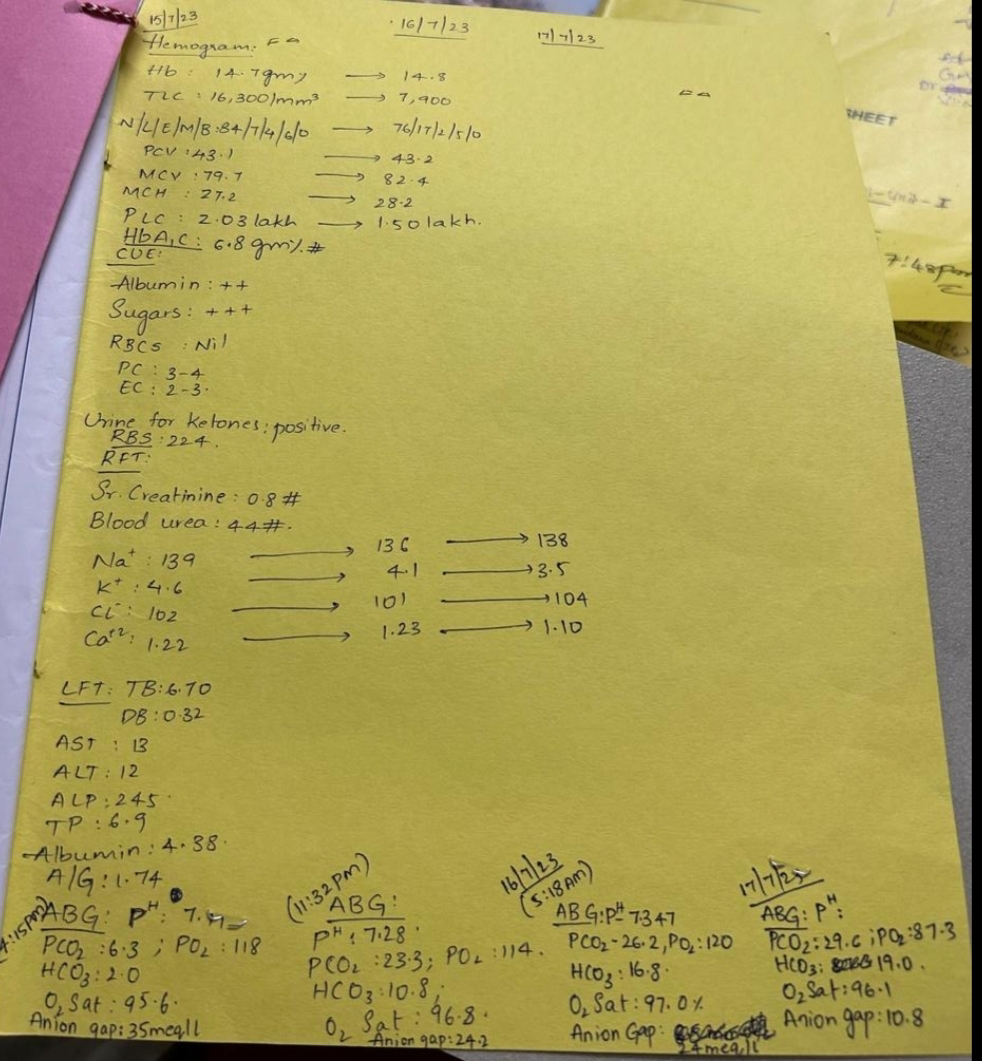 15/7/23
16/7/23
17/7/23
Hemogram:
Hb : 14.7gm% → 14.8
TLC : 16,300/mm³ → 7,900
N/L/E/M/B:84/7/4/6/0 → 76/17/2/5/0
PCV : 43.1 → 43.2
MCV : 79.7 → 82.4
MCH : 27.2 → 28.2
PLC : 2.03 lakh → 1.50 lakh.
HbA1C: 6.8 gm%#
CUE:
Albumin : ++
Sugars : +++
RBCs : Nil
PC : 3-4
EC : 2-3.
Urine for ketones: positive.
RBS : 224.
RFT:
Sr. Creatinine : 0.8 #
Blood urea : 44#.
Na⁺ : 139 → 136 → 138
K⁺ : 4.6 → 4.1 → 3.5
Cl⁻ : 102 → 101 → 104
Ca⁺²: 1.22 → 1.23 → 1.10
LFT: TB:6.70
DB : 0.32
AST : 13
ALT : 12
ALP : 245
TP : 6.9
Albumin : 4.38.
A/G : 1.74
4:15pm)
ABG: PH: 7.
PCO₂ : 6.3 ; PO₂ : 118
HCO₃ : 2.0
O₂ Sat : 95.6.
Anion gap: 35meq/l
(11:32pm)
ABG:
PH : 7.28
PCO₂ : 23.3; PO₂ : 114.
HCO₃ : 10.8;
O₂ Sat : 96.8.
Anion gap: 24.2
16/7/23
(5:18AM)
ABG: PH- 7.347
PCO₂ - 26.2, PO₂ : 120
HCO₃ : 16.8.
O₂ Sat : 97.0%
Anion Gap :
24meq/l
17/7/23
ABG: PH:
PCO₂ : 29.6 ; PO₂ : 87.3
HCO₃ : 19.0.
O₂ Sat : 96.1
Anion gap: 10.8
SHEET
Unit - I
7:48pm